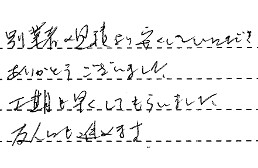 別業者の見積より安くしていただき
ありがとうございました。
工期も早くしてもらいました。
友人にも進めます